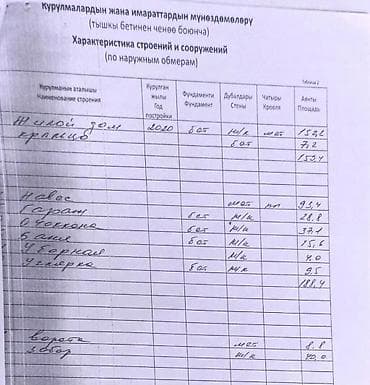 Курулмалардын жана имараттардын мүнөздөмөлөрү
(тышкы бетинен ченөө боюнча)
Характеристика строений и сооружений
(по наружным обмерам)
Таблица 2
Курулманын аталышы Наименование строения Курулган жылы Год постройки Фундаменти Фундамент Дубалдары Стены Чатыры Кровля Аянты Площадь
Жилой дом 2020 бет м/к мет
крыльцо бет 7,2
153,4
Навес мет 93,4
Гараж бет м/к 28,8
бет м/к 37,1
Баня бет м/к 15,6
Уборная м/к 4,0
бет м/к 9,5
188,4
ворота мет 8,8
забор м/к 40,0